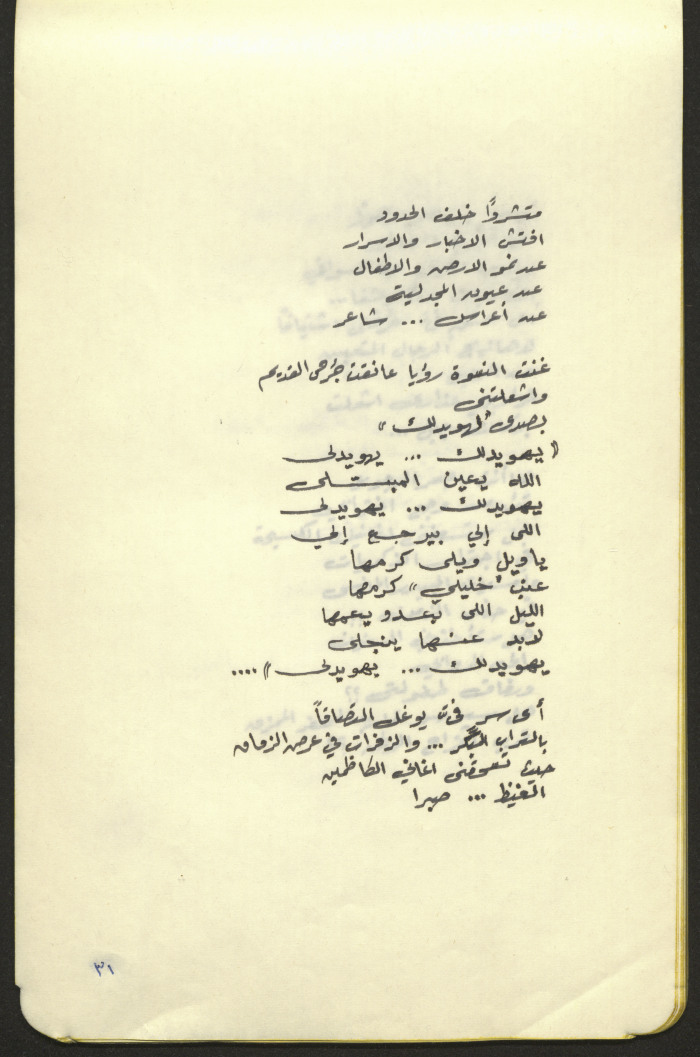 متشردًا خلف الحدود
افتش الاخبار والاسرار
عند نمو الارض والاطفال
عند عيون المجدلية
عند أعراس ... شاعر
غنت النسوة رؤيا عانقت جرحى القديم
واشعلتنى
بصدى "لهويدلك"
"يهويدلك ... يهويدلى
الله يعين المبتلى
يهويدلك ... يهويدلى
اللى إلي بيرجع إلي
ياويل ويلى كرمها
عنب "خليلي" كرمها
الليل اللى بعدو يعمها
لابد عنها ينجلى
يهويدلك ... يهويدلى" ....
أى سر فىّ يوغل التصاقاً
بالتراب البكر ... والزفرات في عرض الزمان
حيث تسحقنى اغاني الكاظمين
الغيظ ... صبرا
٣١